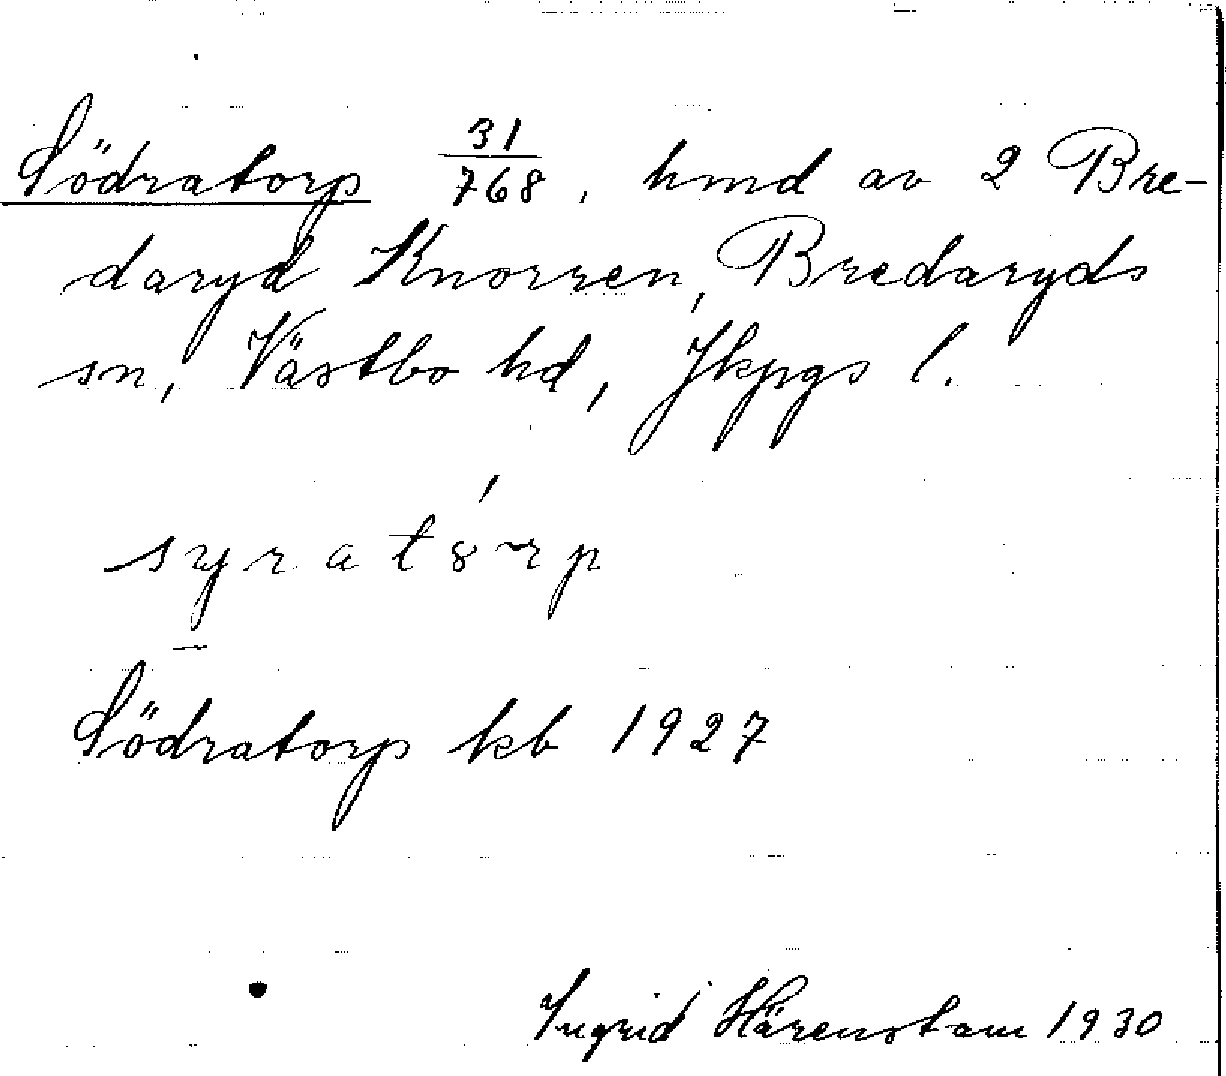 Södratorp 31/768, hmd av 2 Bre-
daryd Knorren, Bredaryds
sn, Västbo hd, Jkpgs l.
syrat8rp
Södratorp kb 1927
Ingrid Härenstam 1930